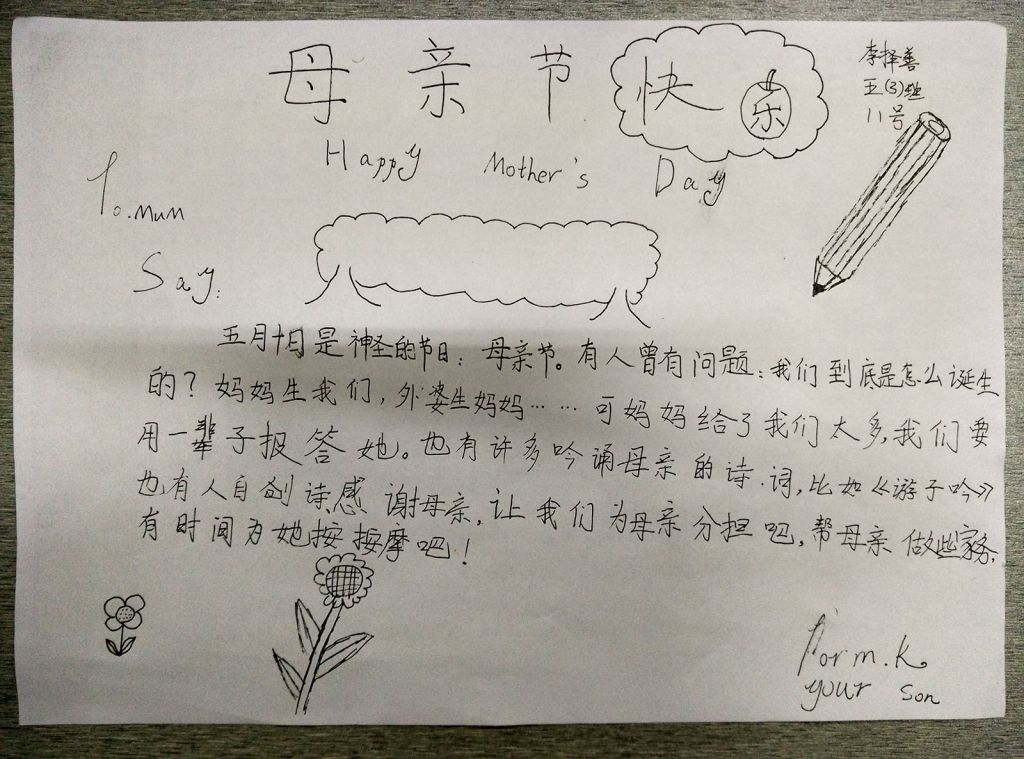 母亲节快乐
李择善
五(3)班
11号
Happy Mother's Day
To.mum
Say:
五月十日是神圣的节日：母亲节。有人曾有问题：我们到底是怎么诞生
的？妈妈生我们，外婆生妈妈……可妈妈给了我们太多，我们要
用一辈子报答她。也有许多吟诵母亲的诗.词，比如《游子吟》
也有人自创诗感谢母亲，让我们为母亲分担吧，帮母亲做些家务，
有时间为她按按摩吧！
Form.k
your son